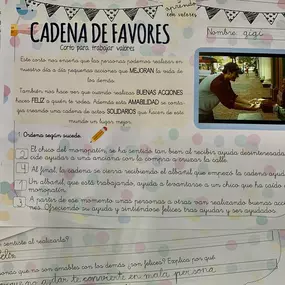 aprendo
con valores
CADENA DE FAVORES
Corto para trabajar valores
Nombre: gigi
Este corto nos enseña que las personas podemos realizar en
nuestro día a día pequeñas acciones que MEJORAN la vida de
los demás.
También nos hace ver que cuando realizas BUENAS ACCIONES
haces FELIZ a quien te rodea. Además esta AMABILIDAD se conta-
gia creando una cadena de actos SOLIDARIOS que hacen de este
mundo un lugar mejor.
1. Ordena según sucede.
2 El chico del monopatín, se ha sentido tan bien al recibir ayuda desinteresada
ide ayudar a una anciana con la compra a cruzar la calle.
4 Al final, la cadena se cierra recibiendo el albañil que empezó la cadena ayuda
1 Un albañil, que está trabajando, ayuda a levantarse a un chico que ha caído
monopatín.
3 A partir de ese momento unas personas a otras van realizando buenas ac
nes. Ofreciendo su ayuda y sintiéndose felices tras ayudar y ser ayudados.
sentiste al realizarla?
feliz
sonas que no son amables con los demás ¿son felices? Explica por qué
ayudar te convierte en mala persona